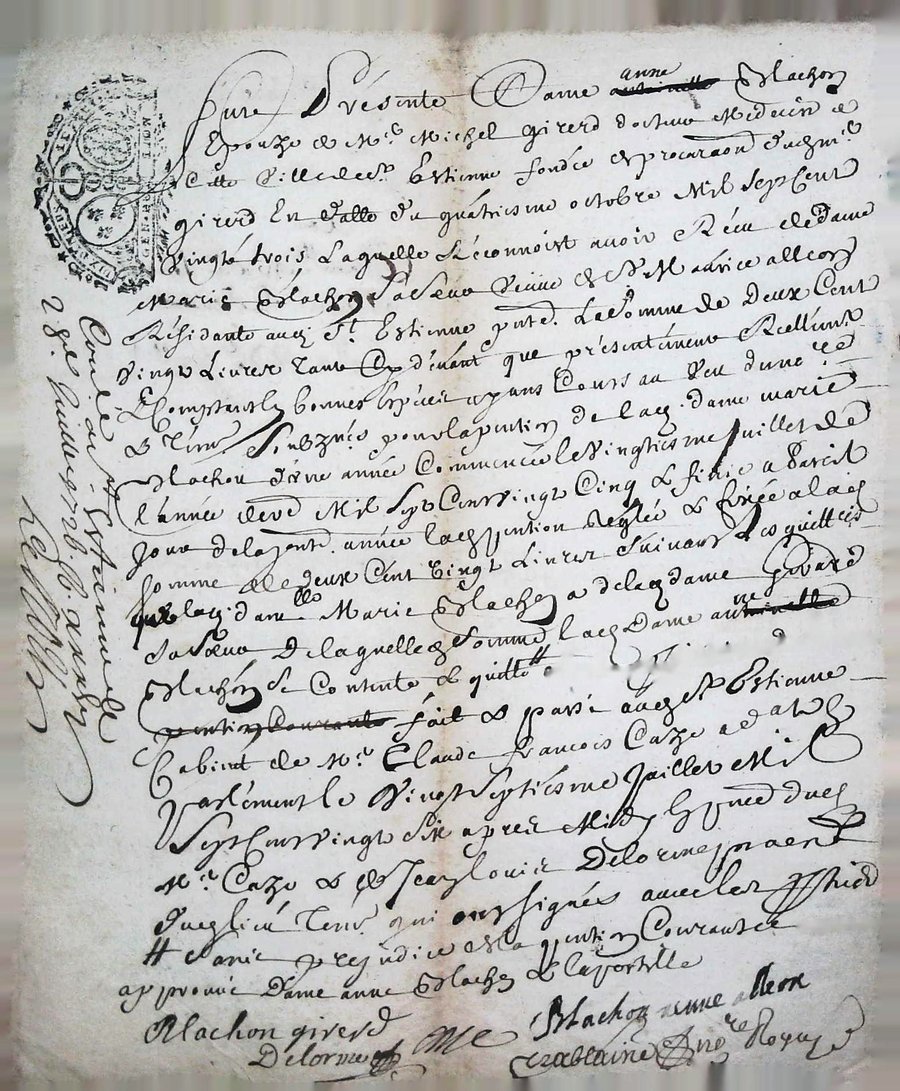 fure Présente Dame anne Blachon
Epouze de Mr. Michel girerd docteur Medecin de
Cette Ville de St. Estienne fondée de procuraon dudit Sr.
girerd En datte du quatriesme octobre Mil Sept Cent
Vingt trois Laquelle Reconnoist avoir Réçu de dame
Marie Blachon sa Sœur Veuve de Sr. Maurice alleon
Résidante audit St. Estienne pnte. La Somme de Deux Cent
Vingt Livres tant Cy dévant que présentément Réellemt.
Comptant En bonnes Espéces ayans Cours au Veu du nore.
& Temr. Soubznés pour la pention de lad. dame marie
Blachon d'une année Commencée le Vingtiesme Juillet de
l'année derre. Mil Sept Cent Vingt Cinq & finie a Pareil
Jour de la pnte. année lad. pention Réglée & fixée a lad.
somme de deux Cent Vingt Livres Suivant les quittces
que lad. dame Marie Blachon a de lad. dame girard
sa Sœur De laquelle Somme lad. Dame anne
Blachon Se Contente & quitte #
pention Courante fait & passé audit St. Estienne
Cabinet de Mr. Claude françois Caze advt. En
parlément le Vingt Septiésme Juillet Mil
Sept Cent Vingt Six apres Midy En pnce dud.
Mr. Caze & de Sr. Jean Louis Delorme praen.
dud. lieu Temr. qui ont signés avec les parties
# sans préjudice de la pention Courante
approuvé Dame anne Blachon &
Blachon girerd
Blachon veuve alleon
Delorme
Caze
nore Royal
Conle. a St. Estienne le
28e. Juillet 1726